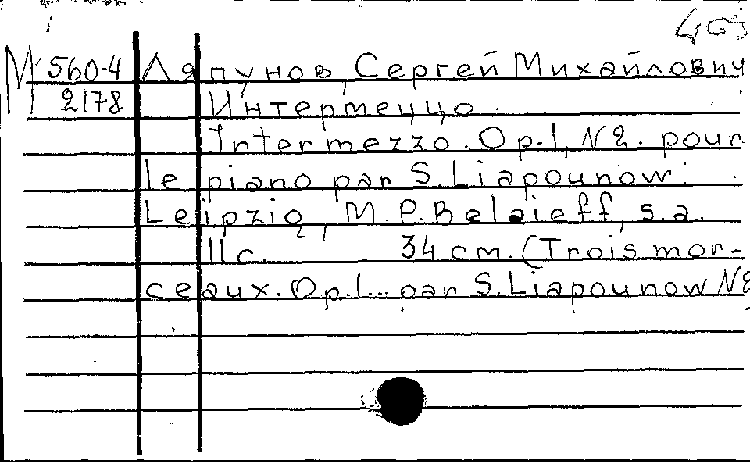 403
М 560-4 Ляпунов, Сергей Михайлович
2178 Интермеццо.
Intermezzo. Op.1, N2. pour
le piano par S. Liapounow.
Leipzig, M. P. Belaieff, s.a.
11c. 34 cm. (Trois mor-
ceaux. Op.1... par S. Liapounow N2